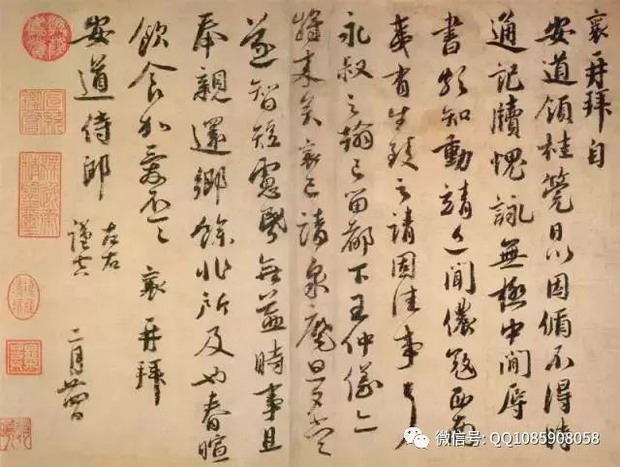 襄再拜自
安道領桂筦日以因循不得時
通記牘愧詠無極中間辱
書頗知動靖近聞儂寇西南
夷有生致之請固佳事
永叔之翰已留都下王仲儀亦
將來矣襄已請泉麾旦夕當
遂智短慮昏無益時事且
奉親還鄉餘非所及也春暄
飲食加愛不一一 襄再拜
安道侍郎 左右 謹空 二月廿四日
微信号: QQ1085908058